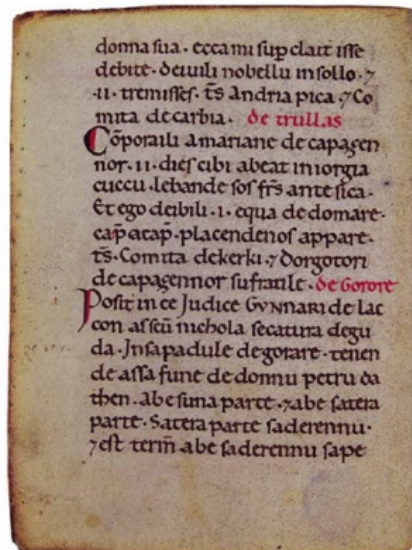 donna sua. ecca mi sup clait isse
debite. deiuili nobellu in sollo. ⁊
.ii. tremisses. t̄s Andria pica. ⁊ Co
mita de carbia. de trullas
Cōporaili a mariane de capagen
nor. ii. dies cibi abeat in iorgia
cuccu. lebande sos fr̄s ante sica.
Et ego deibili .i. equa de domare.
cap̄ atap̄. placendenos appare.
t̄s. Comita dekerki. ⁊ Dorgotori
de capagennor su fratile. de Gorore
Posit ince Judice GVNNARI de lac
con a scū nichola secatura degu
da. Jnsa padule de gorare. tenen
de assa fune de donnu petru da
then. abe suna parte. ⁊ abe satera
parte. Satera parte sa derennu.
⁊ est term̄ abe sa derennu sape